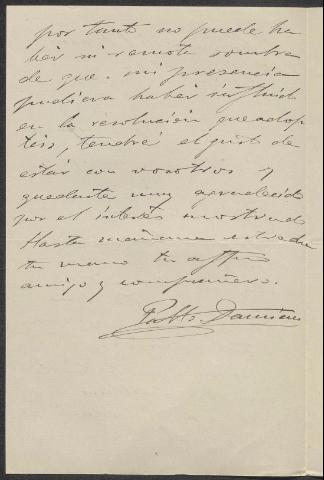 por tanto no puede ha
ber ni remota sombra
de que mi presencia
pudiera haber influido
en la resolución que adop
teis, tendré el gusto de
estar con vosotros y
quedarte muy agradecido
por el interés mostrado
Hasta mañana estrecha
tu mano tu affmo
amigo y compañero.
Pablo